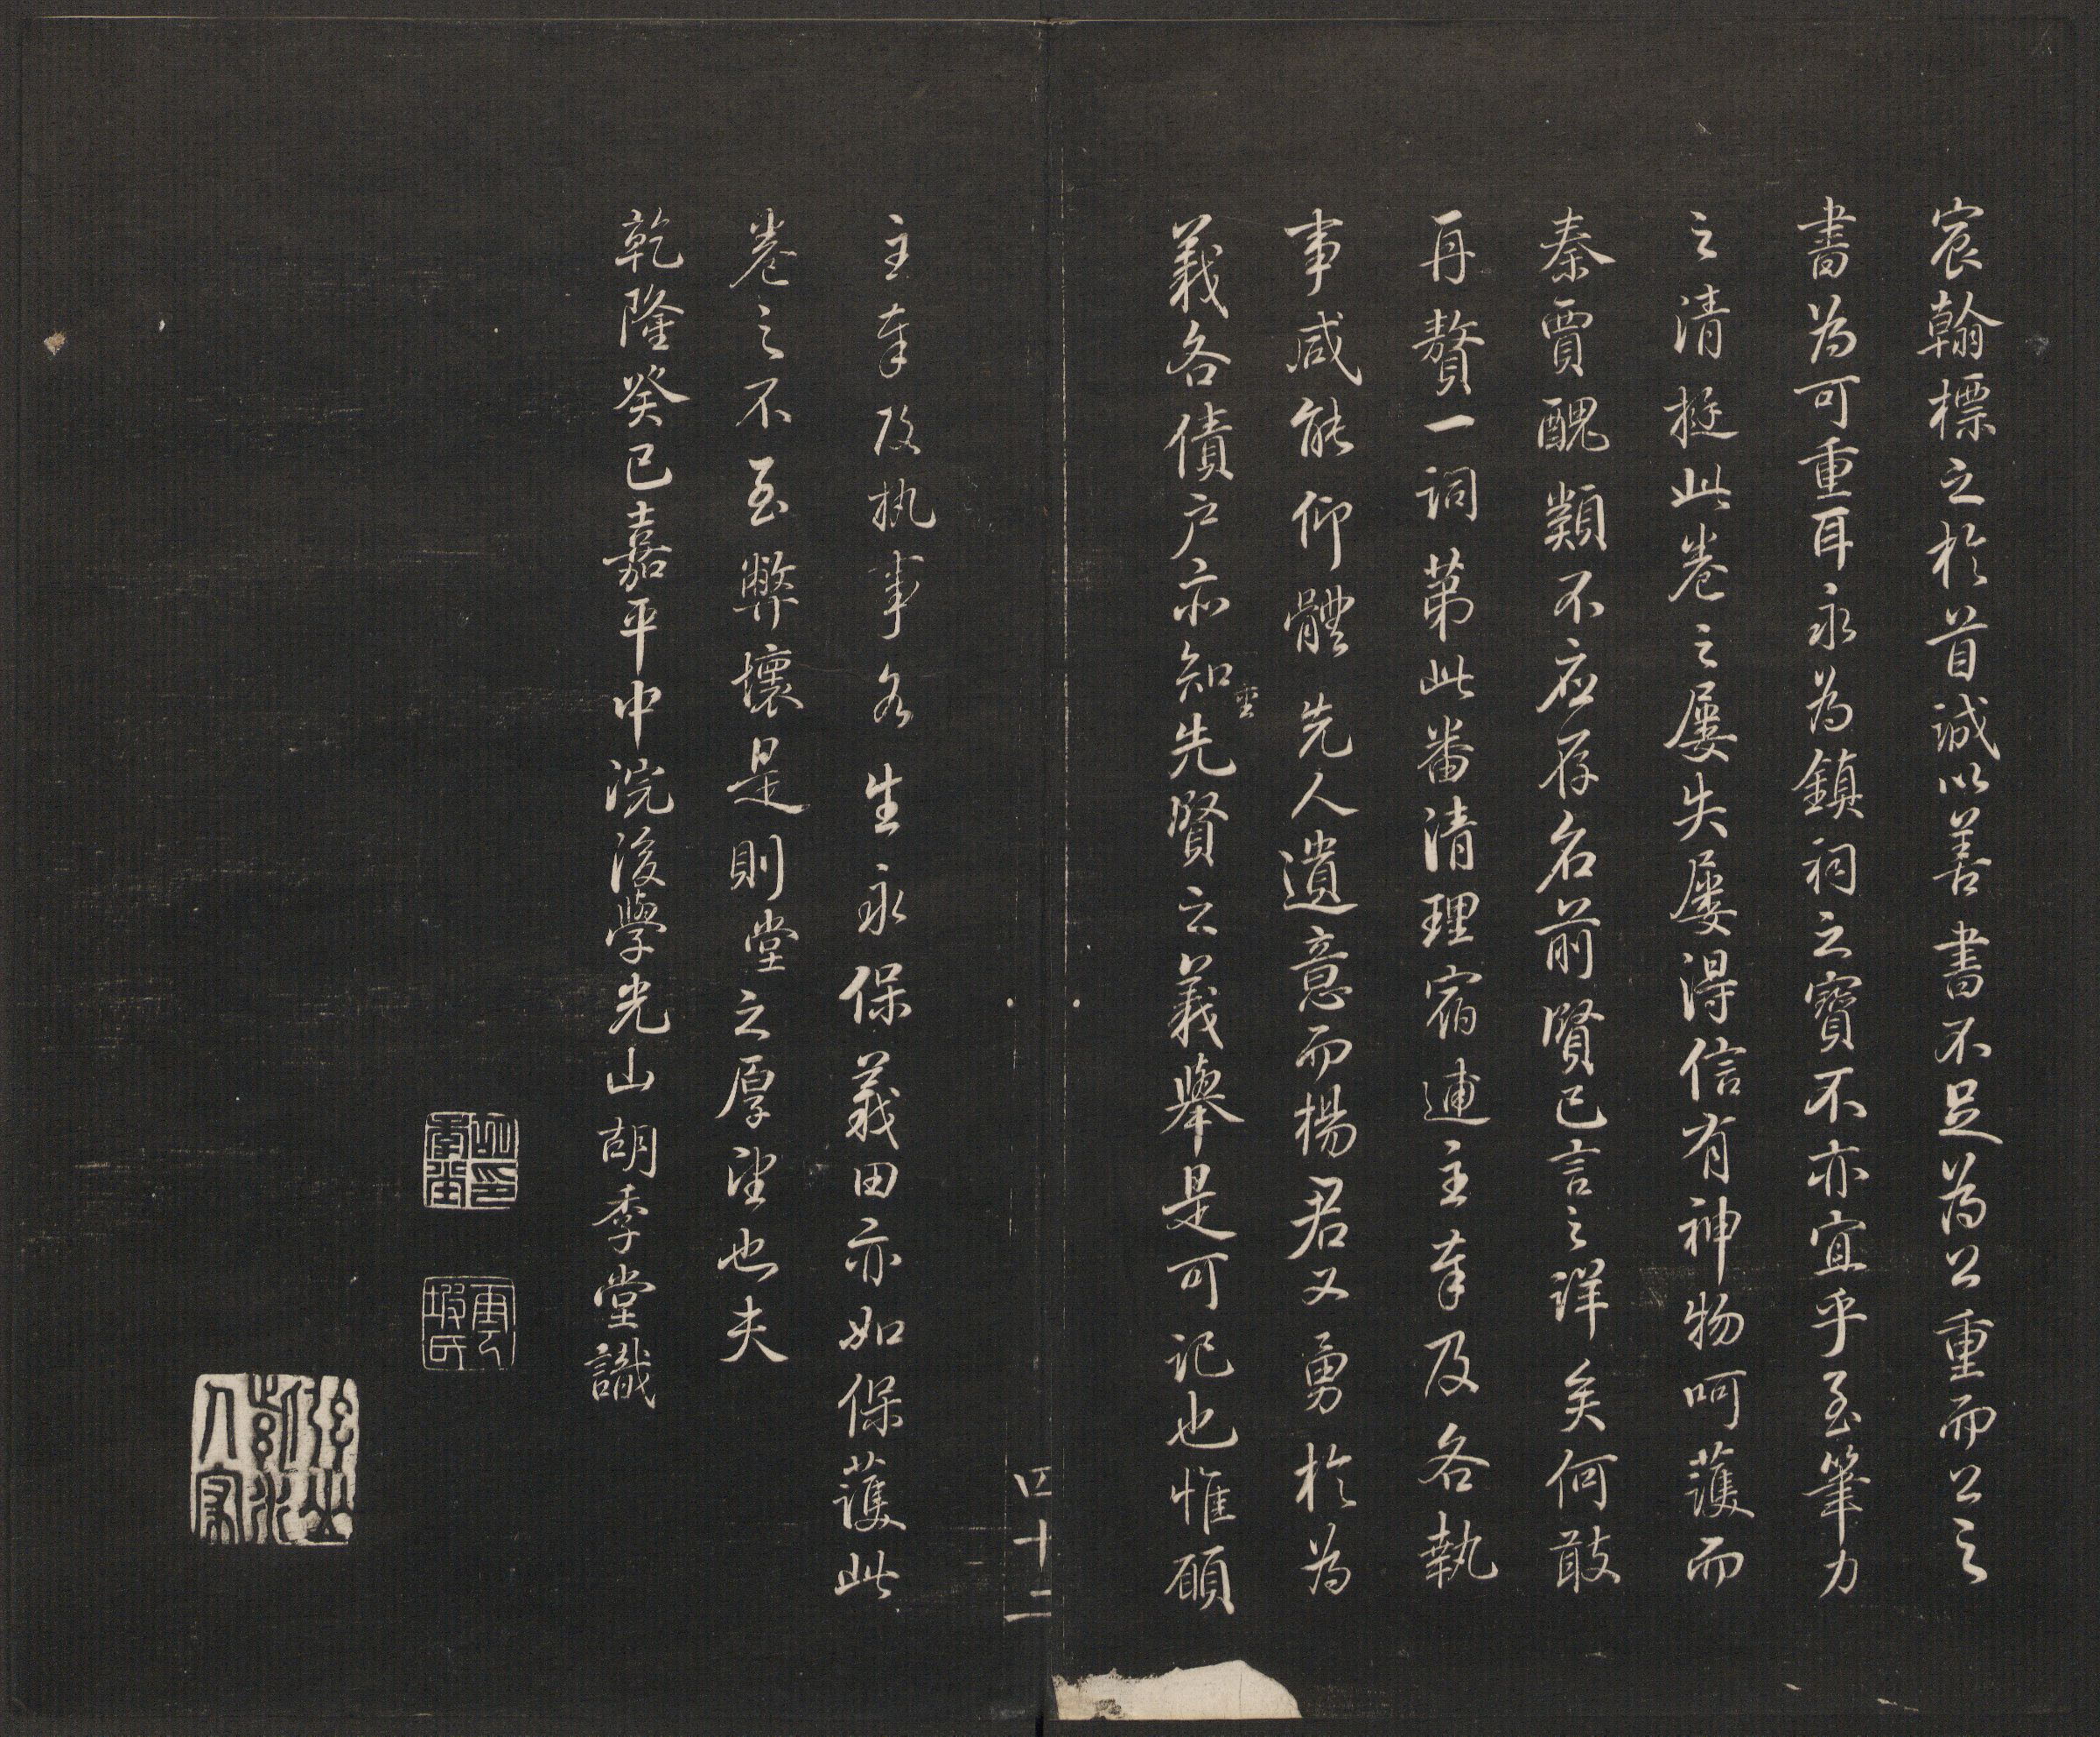 宸翰標之於首誠以善書不足為公重而公之
書為可重耳永為鎮祠之寶不亦宜乎至筆力
之清挺此卷之屢失屢得信有神物呵護而
秦賈醜類不应存名前賢已言之詳矣何敢
再贅一詞第此番清理宿逋主奉及各執
事咸能仰體先人遺意而楊君又勇於為
義各債户亦知重先賢之義舉是可記也惟願
主奉及执事各生永保義田亦如保護此
卷之不至弊壞是則堂之厚望也夫
乾隆癸巳嘉平中浣後學光山胡季堂識
四十二